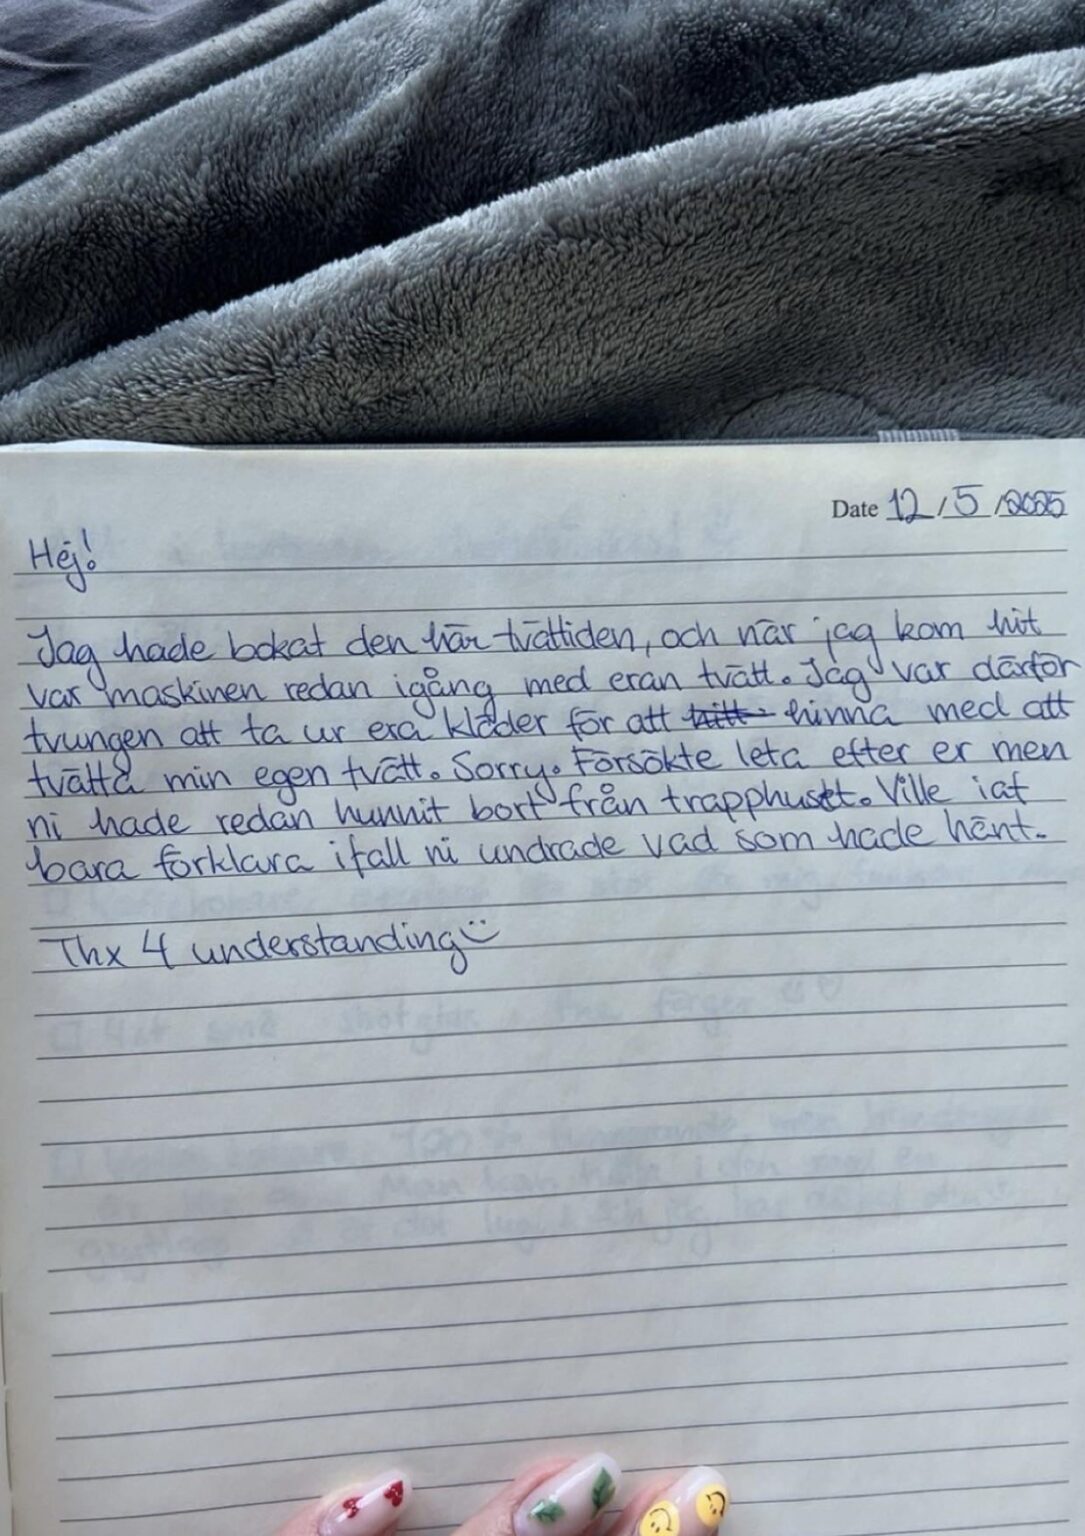 Date 12/5/2025
Hej!
Jag hade bokat den här tvättiden, och när jag kom hit
var maskinen redan igång med eran tvätt. Jag var därför
tvungen att ta ur era kläder för att hinna med att
tvätta min egen tvätt. Sorry. Försökte leta efter er men
ni hade redan hunnit bort från trapphuset. Ville iaf
bara förklara ifall ni undrade vad som hade hänt.
Thx 4 understanding